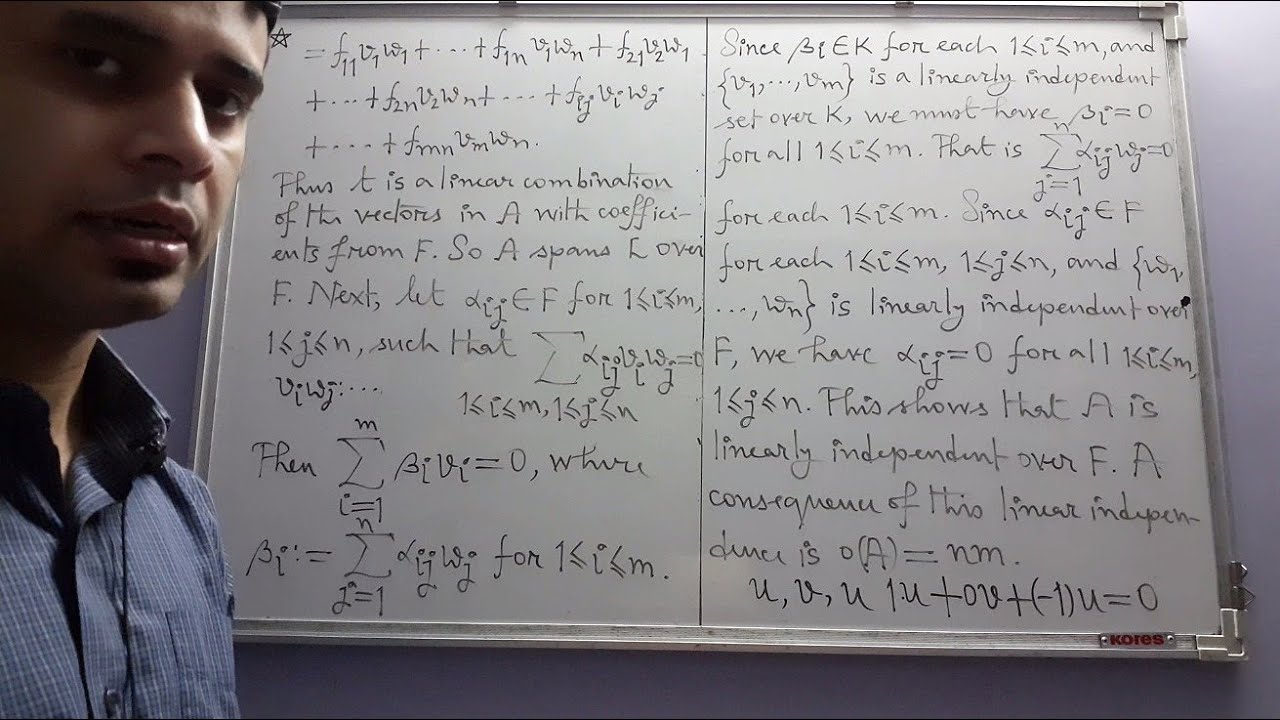 ☆ = f₁₁v₁w₁+ ⋯ + f₁ₙ v₁wₙ + f₂₁v₂w₁
+ ⋯ + f₂ₙv₂wₙ + ⋯ + fᵢⱼvᵢwⱼ
+ ⋯ + fₘₙvₘwₙ.
Thus t is a linear combination
of the vectors in A with coeffici-
ents from F. So A spans L over
F. Next, let αᵢⱼ∈F for 1≤i≤m,
1≤j≤n, such that ∑αᵢⱼvᵢwⱼ=0
vᵢwⱼ:⋯
1≤i≤m, 1≤j≤n
Then ∑_{i=1}^{m} βᵢvᵢ=0, where
βᵢ:= ∑_{j=1}^{n} αᵢⱼwⱼ for 1≤i≤m.
Since βᵢ∈K for each 1≤i≤m, and
{v₁,...,vₘ} is a linearly independent
set over K, we must have βᵢ=0
for all 1≤i≤m. That is ∑_{j=1}^{n} αᵢⱼwⱼ=0
for each 1≤i≤m. Since αᵢⱼ∈F
for each 1≤i≤m, 1≤j≤n, and {w₁,
...,wₙ} is linearly independent over
F, we have αᵢⱼ=0 for all 1≤i≤m,
1≤j≤n. This shows that A is
linearly independent over F. A
consequence of this linear indepen-
dence is o(A)=nm.
u, v, u 1u+0v+(-1)u=0
KORES